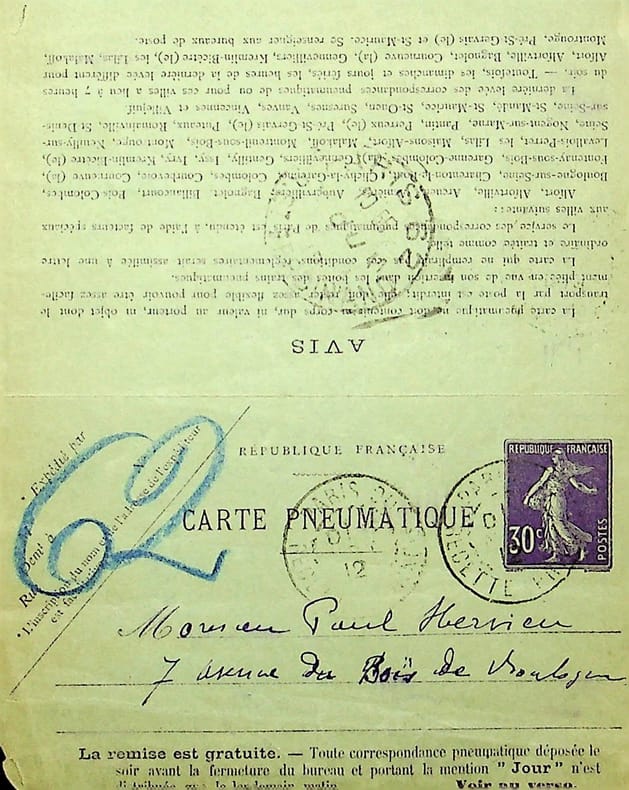 La carte pneumatique ne doit contenir ni corps dur, ni valeur au porteur, ni objet dont le
transport par la poste est interdit; elle doit rester assez flexible pour pouvoir être assez facile
ment pliée en vue de son insertion dans les boîtes des trains pneumatiques.
La carte qui ne remplirait pas ces conditions réglementaires serait assimilée à une lettre
ordinaire et traitée comme telle.
Le service des correspondances pneumatiques de Paris est étendu, à l'aide de facteurs spéciaux
aux villes suivantes :
Alfort, Alforville, Arcueil, Asnières, Aubervilliers, Bagnolet, Billancourt, Bois-Colombes,
Boulogne-sur-Seine, Charenton-le-Pont, Clichy-la-Garenne, Colombes, Courbevoie, Courneuve (la),
Fontenay-sous-Bois, Garenne-Colombes (la), Gennevilliers, Gentilly, Issy, Ivry, Kremlin-Bicêtre (le),
Levallois-Perret, les Lilas, Maisons-Alfort, Malakoff, Montreuil-sous-Bois, Montrouge, Neuilly-sur-
Seine, Nogent-sur-Marne, Pantin, Perreux (le), Pré-St-Gervais (le), Puteaux, Romainville, St-Denis-
sur-Seine, St-Mandé, St-Maurice, St-Ouen, Suresnes, Vanves, Vincennes et Villejuif.
La dernière levée des correspondances pneumatiques de ou pour ces villes a lieu à 7 heures
du soir. — Toutefois, les dimanches et jours fériés, les heures de la dernière levée diffèrent pour
Alfort, Alfortville, Bagnolet, Courneuve (la), Gennevilliers, Kremlin-Bicêtre (le), les Lilas, Malakoff,
Montrouge, Pré-St-Gervais (le) et St-Maurice. Se renseigner aux bureaux de poste.
AVIS
62
Expédié par
M
Demt à
Rue
L'inscription du nom et de l'adresse de l'expéditeur
est fac
RÉPUBLIQUE FRANÇAISE
CARTE PNEUMATIQUE
RÉPUBLIQUE FRANÇAISE
30c
POSTES
PARIS
12
PARIS
Monsieur Paul Hervieu
7 avenue du Bois de Boulogne
La remise est gratuite. — Toute correspondance pneumatique déposée le
soir avant la fermeture du bureau et portant la mention "Jour" n'est
distribuée que le lendemain matin. Voir au verso.